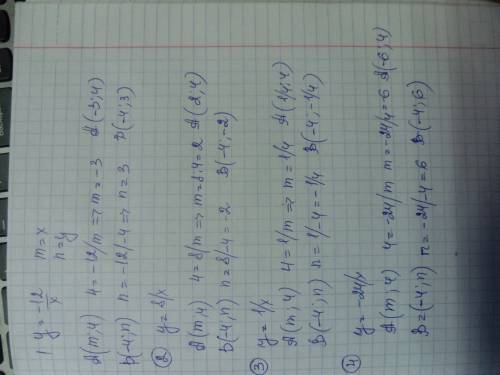 1 y = -12/x m=x
n=y
A(m;4) 4=-12/m => m=-3 A(-3;4)
B(-4;n) n=-12/-4 => n=3 B(-4;3)
② y=8/x
A(m;4) 4=8/m => m=8:4=2 A(2;4)
B(-4;n) n=8/-4=-2 B(-4;-2)
③ y=1/x
A(m;4) 4=1/m => m=1/4 A(1/4;4)
B(-4;n) n=1/-4=-1/4 B(-4;-1/4)
④ y=-24/x
A(m;4) 4=-24/m m=-24/4=-6 A(-6;4)
B=(-4;n) n=-24/-4=6 B(-4;6)